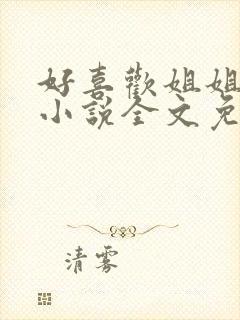 好喜歡姐姐
小說全文免
清雾